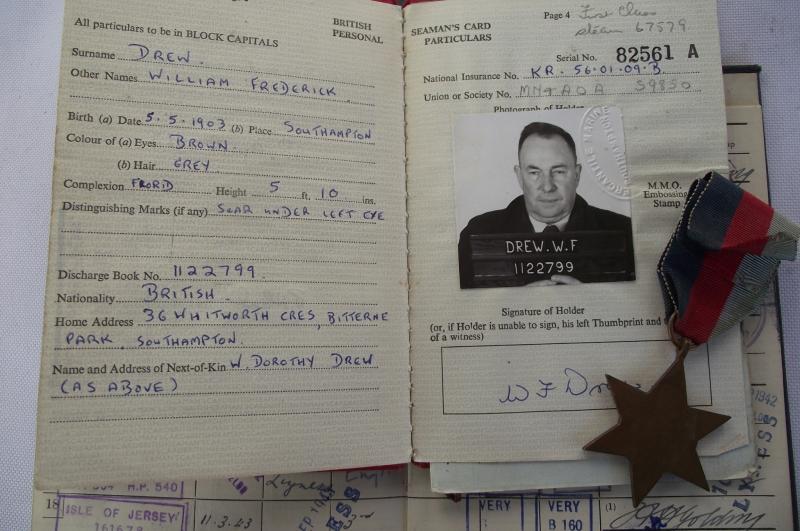 All particulars to be in BLOCK CAPITALS
BRITISH
PERSONAL
Surname DREW.
Other Names WILLIAM FREDERICK
Birth (a) Date 5.5.1903 (b) Place SOUTHAMPTON
Colour of (a) Eyes BROWN
(b) Hair GREY
Complexion FRORID Height 5 ft. 10 ins.
Distinguishing Marks (if any) SCAR UNDER LEFT EYE
Discharge Book No. 1122799.
Nationality BRITISH.
Home Address 36 WHITWORTH CRES, BITTERNE
PARK, SOUTHAMPTON.
Name and Address of Next-of-Kin W. DOROTHY DREW
(AS ABOVE)
SEAMAN'S CARD
PARTICULARS
Page 4
First Class
steam 67579
Serial No. 82561 A
National Insurance No. KR. 56.01.09.B
Union or Society No. MN & AOA 59850
Photograph of Holder
DREW. W.F
1122799
M.M.O.
Embossing
Stamp
Signature of Holder
(or, if Holder is unable to sign, his left Thumbprint and
of a witness)
W F Drew
M.P. 540
ISLE OF JERSEY
161678
11.3.43
VERY
VERY
B 160
(1)
1942